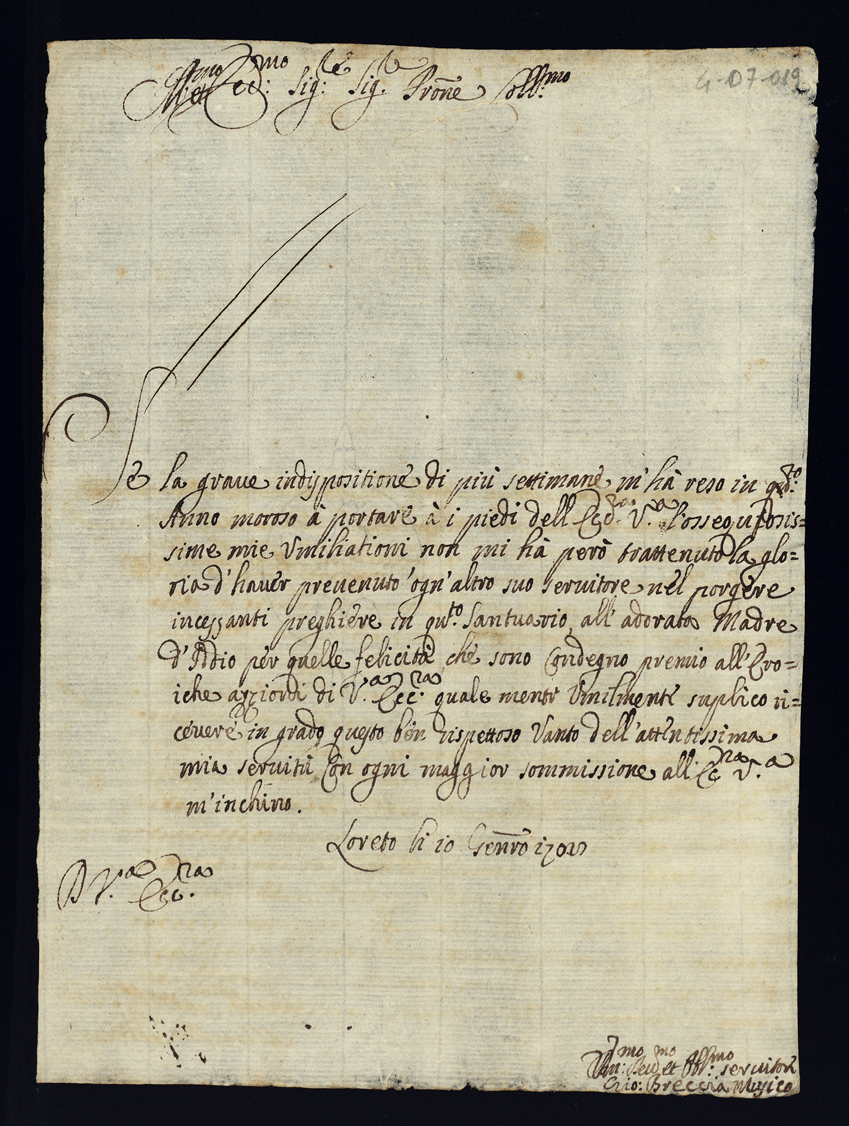 Ill.mo et Ecc.mo Sig.re Sig.re Prone Coll.mo
G-07-019
Se la grave indispositione di più settimane m'hà reso in qsto:
Anno moroso à portare à i piedi dell'Ecc.za V.a l'ossequiosis=
sime mie Umiliationi non mi hà però trattenuto la glo=
ria d'haver prevenuto ogn'altro suo servitore nel porgere
incessanti preghiere in qu.to Santuario all'adorata Madre
d'Iddio per quelle felicità che sono Condegno premio all'Ero=
iche azzioni di V.a Ecc.za quale mente Umilmente suplico ri=
cevere in grado questo ben rispettoso Vanto dell'attentissima
mia servitù Con ogni maggior sommissione all'Ecc.za V.a
m'inchino.
Loreto li 10 Genn̄ro
D V.a Ecc.za
servitore
Gio: Breccia Musico